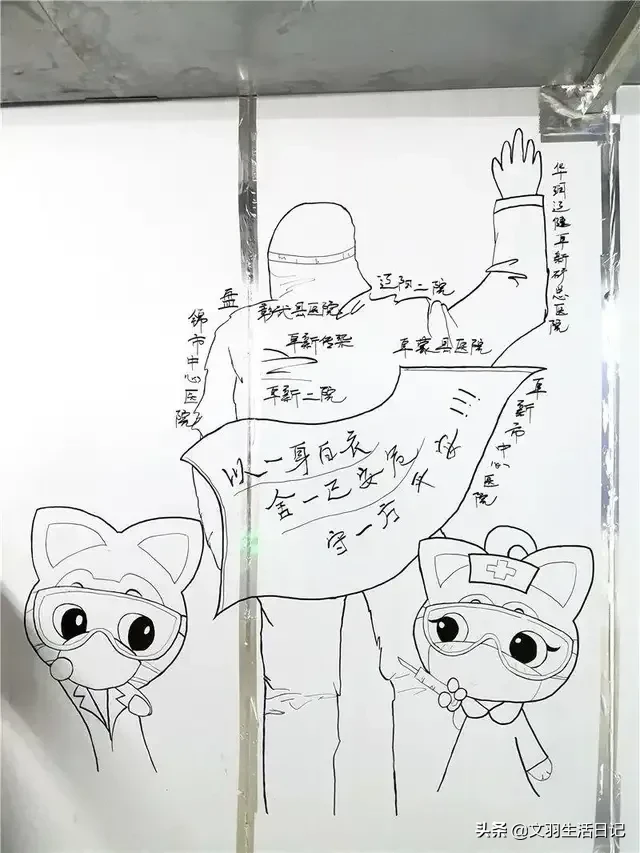 华润辽健阜新矿总医院
辽阳二院
盘
彰武县医院
锦市中心医院
阜新传染
阜蒙县医院
阜新二院
阜新市中心医院
以一身白衣
舍一己安危
守一方
头条 @文羽生活日记